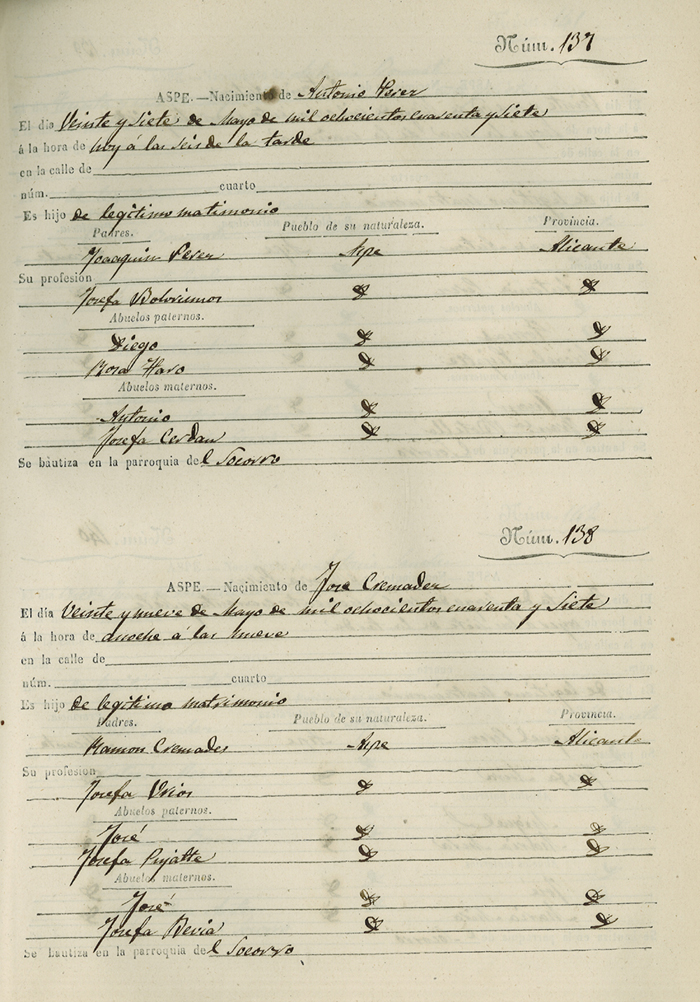 Núm. 137
ASPE.—Nacimiento de Antonio Perez
El dia Veinte y siete de Mayo de mil ochocientos cuarenta y siete
á la hora de hoy á las seis de la tarde
en la calle de
núm. cuarto
Es hijo de legitimo matimonio
Padres. Pueblo de su naturaleza. Provincia.
Joaaquin Perez Aspe Alicante
Su profesión
Josefa
Abuelos paternos.
Diego
Rosa Haro
Abuelos maternos.
Antonio
Josefa Cerdan
Se bautiza en la parroquia del Socorro
Núm. 138
ASPE.—Nacimiento de Jose Cremades
El día Veinte y nueve de Mayo de mil ochocientos cuarenta y Siete
á la hora de anoche á las nueve
en la calle de
núm. cuarto
Es hijo de legitimo matrimonio
Padres. Pueblo de su naturaleza. Provincia.
Ramon Cremades Aspe Alicante
Su profesion
Josefa Urios
Abuelos paternos.
José
Josefa Pujalte
Abuelos maternos.
José
Josefa Bevia
Se bautiza en la parroquia del Socorro